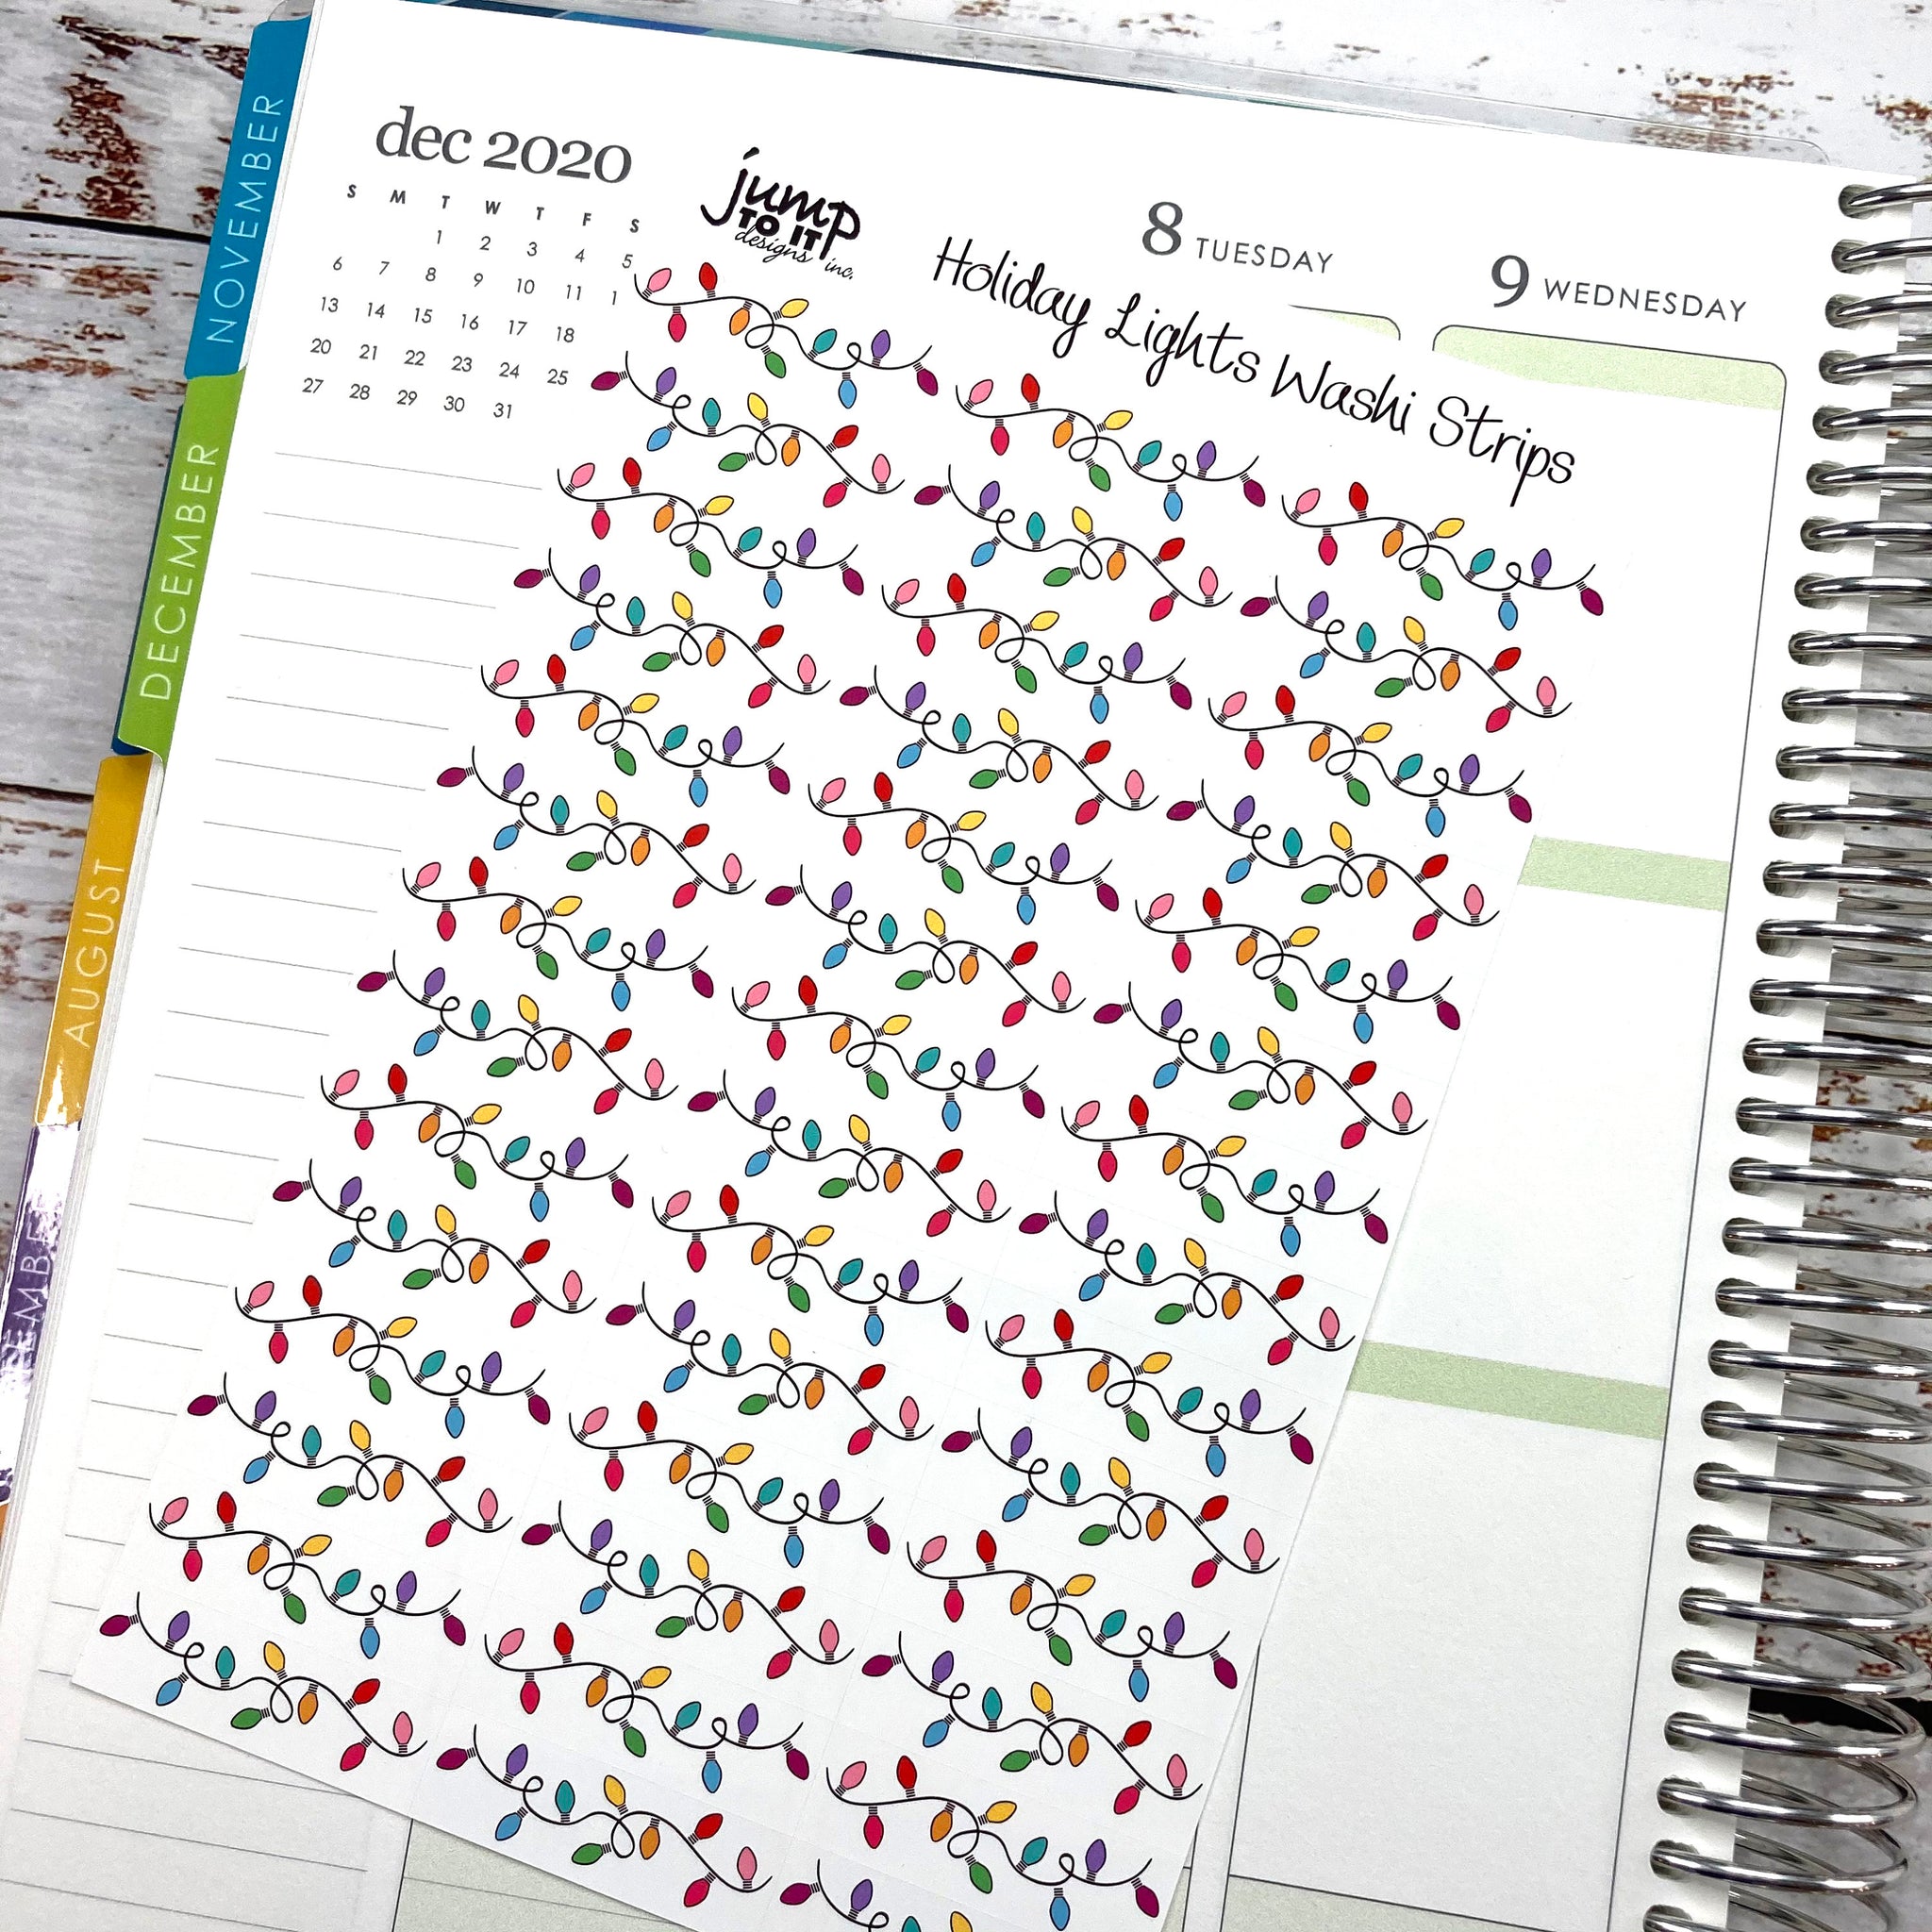 dec 2020
S M T W T F S
1 2 3 4 5
6 7 8 9 10 11 1
13 14 15 16 17 18
20 21 22 23 24 25
27 28 29 30 31
jump
TO IT
designs inc.
8 TUESDAY
9 WEDNESDAY
Holiday Lights Washi Strips
NOVEMBER
DECEMBER
AUGUST